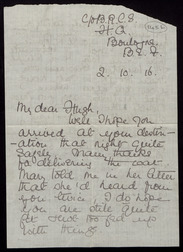 C/o B.R.C.S.
H.Q.
Boulogne
B.E.F.
2. 10. 16.
My dear Hugh.
Well I hope you
arrived at your destin-
ation that night quite
safely. Many thanks
for delivering the coat
May told me in her letter
that she'd heard from
you twice, I do hope
you are still quite
fit and not fed up
with things